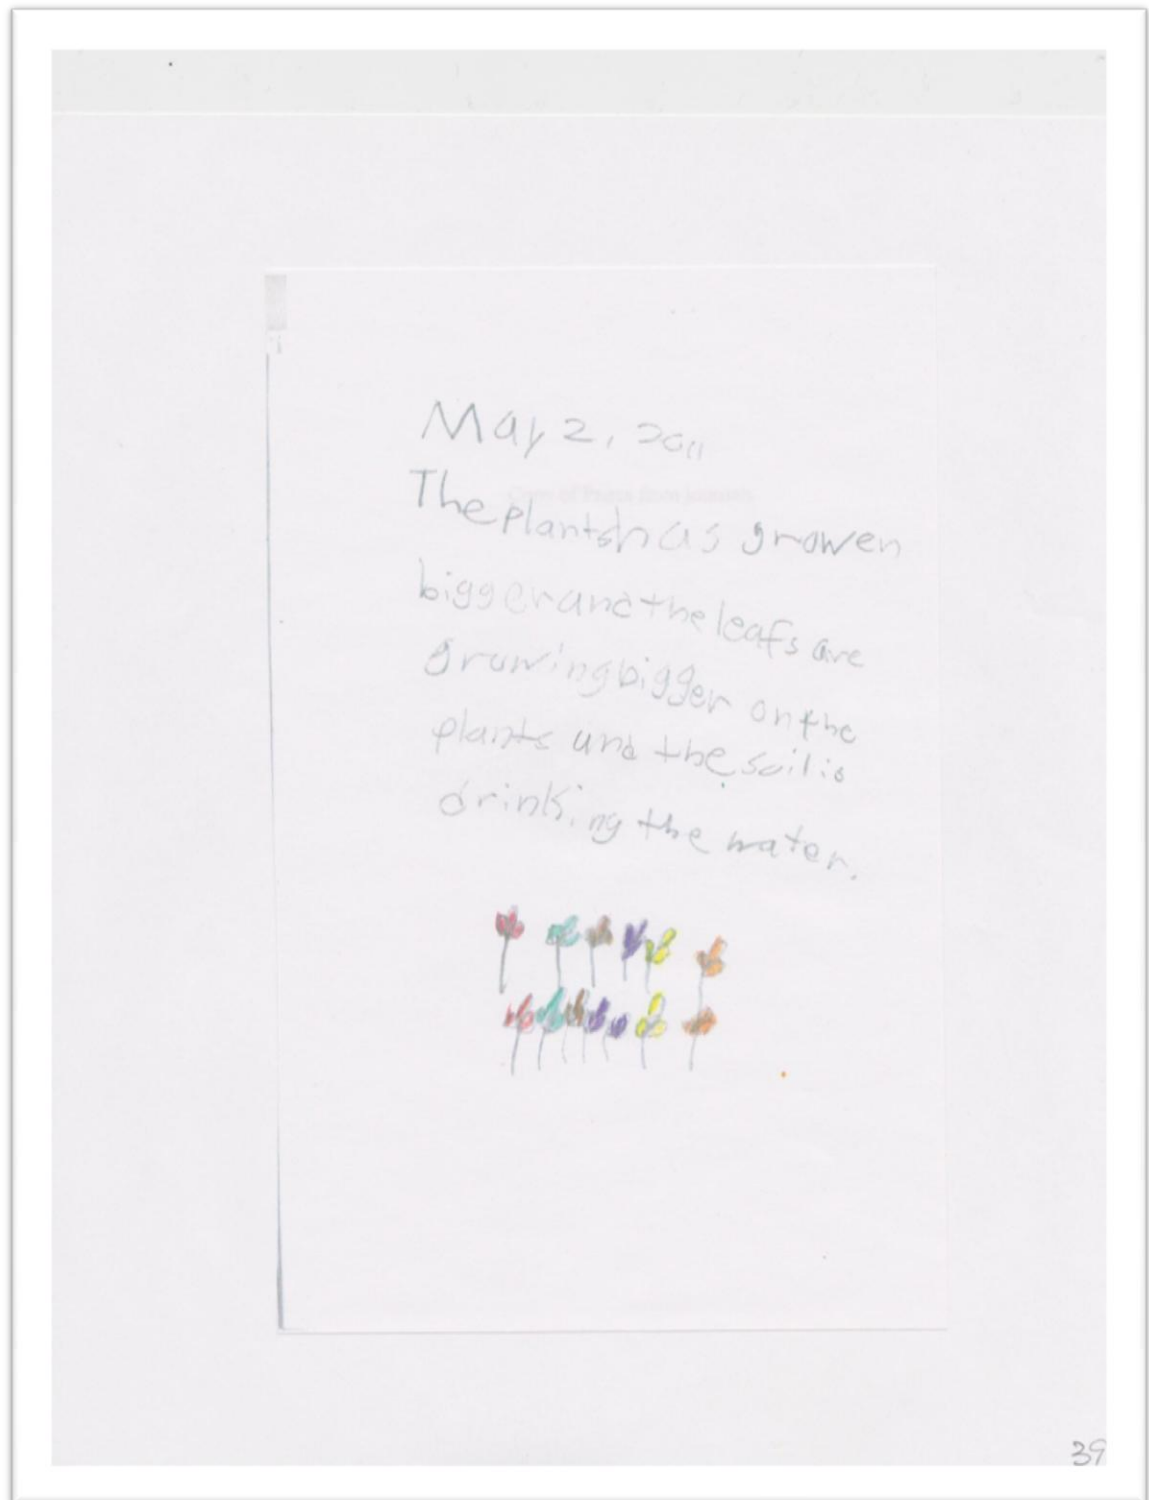 May 2, 2011
The plants has growen
bigger and the leafs are
growing bigger on the
plants and the soil is
drinking the water.
39